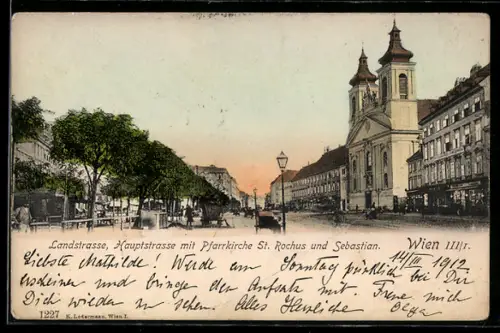 Landstrasse, Hauptstrasse mit Pfarrkirche St. Rochus und Sebastian. Wien III/1.
14/III 1912
Liebste Mathilde! Werde am Sonntag pünktlich bei Dir
erscheinen und bringe den Aufsatz mit. Freue mich
Dich wieder zu sehen. Alles Herzliche
Olga
1227 K. Ledermann, Wien I.